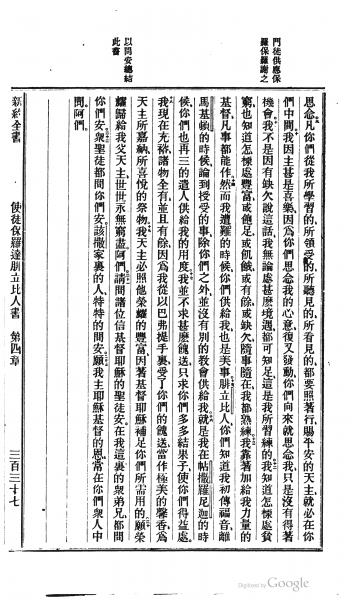 門徒供應保
羅保羅謝之
以問安總結
此書
思念凡你們從我所學習的、所領受的、所聽見的、所看見的、都要照著行、賜平安的天主就必在你
們中間、我因主甚是喜樂、因爲你們思念我的心意、復又發動、你們向來就思念我、只是沒有得著
機會、我不是因有缺欠說這話、我無論處甚麽境遇、都可知足、這是我所習練的、我知道怎樣處貧
窮、也知道怎樣處豐富、或飽足、或飢餓、或有餘、或缺欠、隨事隨在、我都熟練、我靠著加給我力量的
基督、凡事都能作、然而我遭難的時候、你們供給我也是美事、腓立比人、你們知道我初傳福音、離
馬基頓的時候、論到授受的事、除你們之外、並沒有別的教會供給我、就是我在帖撒羅尼迦的時
候、你們也再三的遣人供給我的用度、我並不求甚麽餽送、只求你們多多結果子、使你們得益處、
我現在充裕、諸物全有、並且有餘、因爲我從以巴弗提手裏、受了你們的餽送、當作極美的馨香、爲
天主所嘉納、所喜悅的祭物、我天主必照他榮耀的豐富、因著基督耶穌、補足你們所需用的、願榮
耀歸給我父天主、世世永無窮盡、阿們、請問諸位信基督耶穌的聖徒安、在我這裏的衆弟兄、都問
你們安、衆聖徒都問你們安、該撒家裏的人、特特的問安、願我主耶穌基督的恩、常在你們衆人中
間、阿們、
新約全書 使徒保羅達腓立比人書 第四章 三百三十七
Digitized by Google